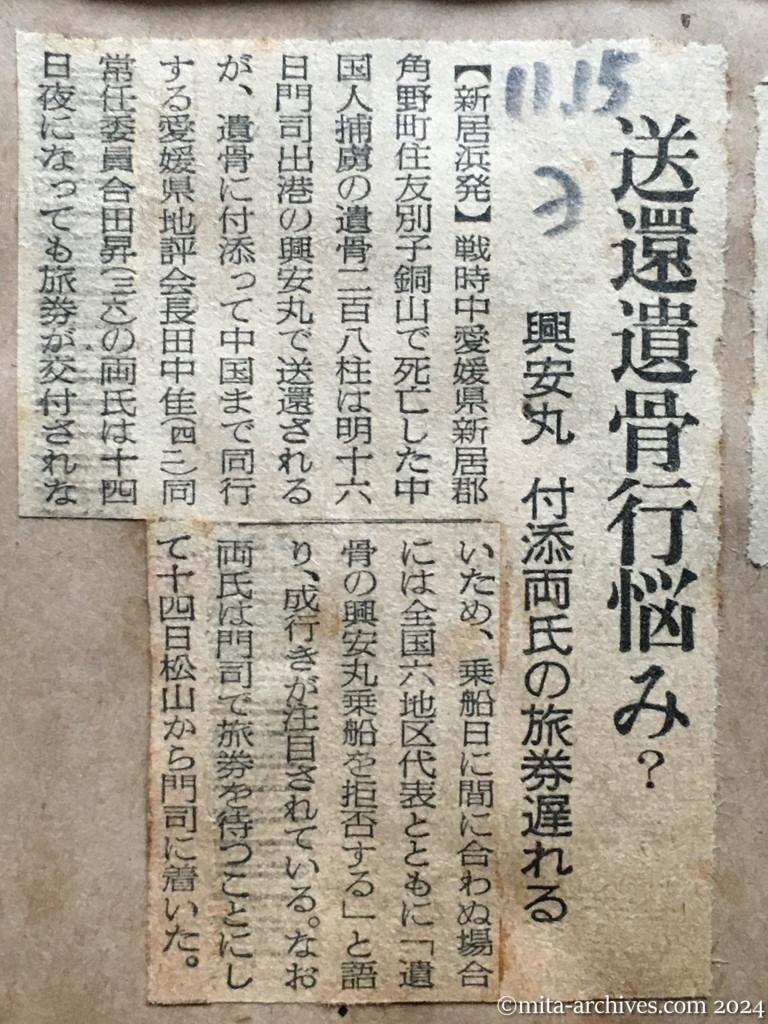 送還遺骨行悩み?
興安丸 付添両氏の旅券遅れる
11.15
【新居浜発】戦時中愛媛県新居郡
角野町住友別子銅山で死亡した中
国人捕虜の遺骨二百八柱は明十六
日門司出港の興安丸で送還される
が、遺骨に付添って中国まで同行
する愛媛県地評会長田中佳(四二)同
常任委員合田昇(三六)の両氏は十四
日夜になっても旅券が交付されな
いため、乗船日に間に合わぬ場合
には全国六地区代表とともに「遺
骨の興安丸乗船を拒否する」と語
り、成行きが注目されている。なお
両氏は門司で旅券を待つことにし
て十四日松山から門司に着いた。
©mita-archives.com 2024